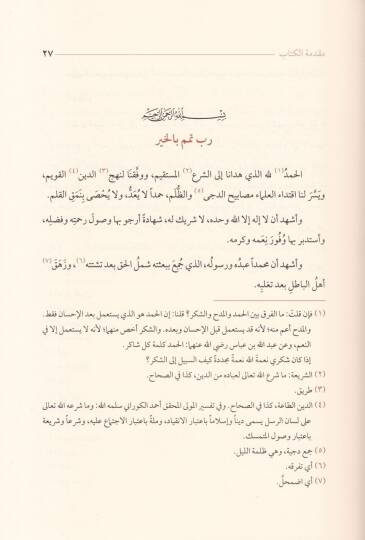 مقدمة الكتاب
٢٧
بسم الله الرحمن الرحيم
رب تمم بالخير
الحمدُ(١) لله الذي هدانا إلى الشرع(٢) المستقيم، ووفَّقَنَا لنهج(٣) الدين(٤) القويم،
ويَسَّرَ لنا اقتداء العلماء مصابيح الدجى(٥) والظُّلَم، حمداً لا يُعدُّ، ولا يُحْصَى بِنَمَقِ القلم.
وأشهد أن لا إله إلا الله وحده، لا شريك له، شهادةً أرجو بها وصولَ رحمتِه وفضلِه،
وأستدير بها وُفُورَ نِعَمه وكرمه.
وأشهد أن محمداً عبدُه ورسولُه، الذي جُمِعَ ببعثته شملُ الحق بعد تشتته(٦)، وزَهَقَ(٧)
أهلُ الباطلِ بعد تغلبِه.
(١) فإن قلت: ما الفرق بين الحمد والمدح والشكر؟ قلنا: إن الحمد هو الذي يستعمل بعد الإحسان فقط.
والمدح أعم منه؛ لأنه قد يستعمل قبل الإحسان وبعده. والشكر أخص منهما؛ لأنه لا يستعمل إلا في
النعم، وعن عبد الله بن عباس رضي الله عنهما: الحمد كلمة كل شاكر.
إذا كان شكري نعمةَ الله نعمةً مجددةً كيف السبيل إلى الشكر؟
(٢) الشريعة: ما شرع الله تعالى لعباده من الدين، كذا في الصحاح.
(٣) طريق.
(٤) الدين الطاعة، كذا في الصحاح. وفي تفسير المولى المحقق أحمد الكوراني سلمه الله: وما شرعه الله تعالى
على لسان الرسل يسمى ديناً وإسلاماً باعتبار الانقياد، وملةً باعتبار الاجتماع عليه، وشرعاً وشريعة
باعتبار وصول المتمسك.
(٥) جمع دجية، وهي ظلمة الليل.
(٦) أي تفرقه.
(٧) أي اضمحلَّ.